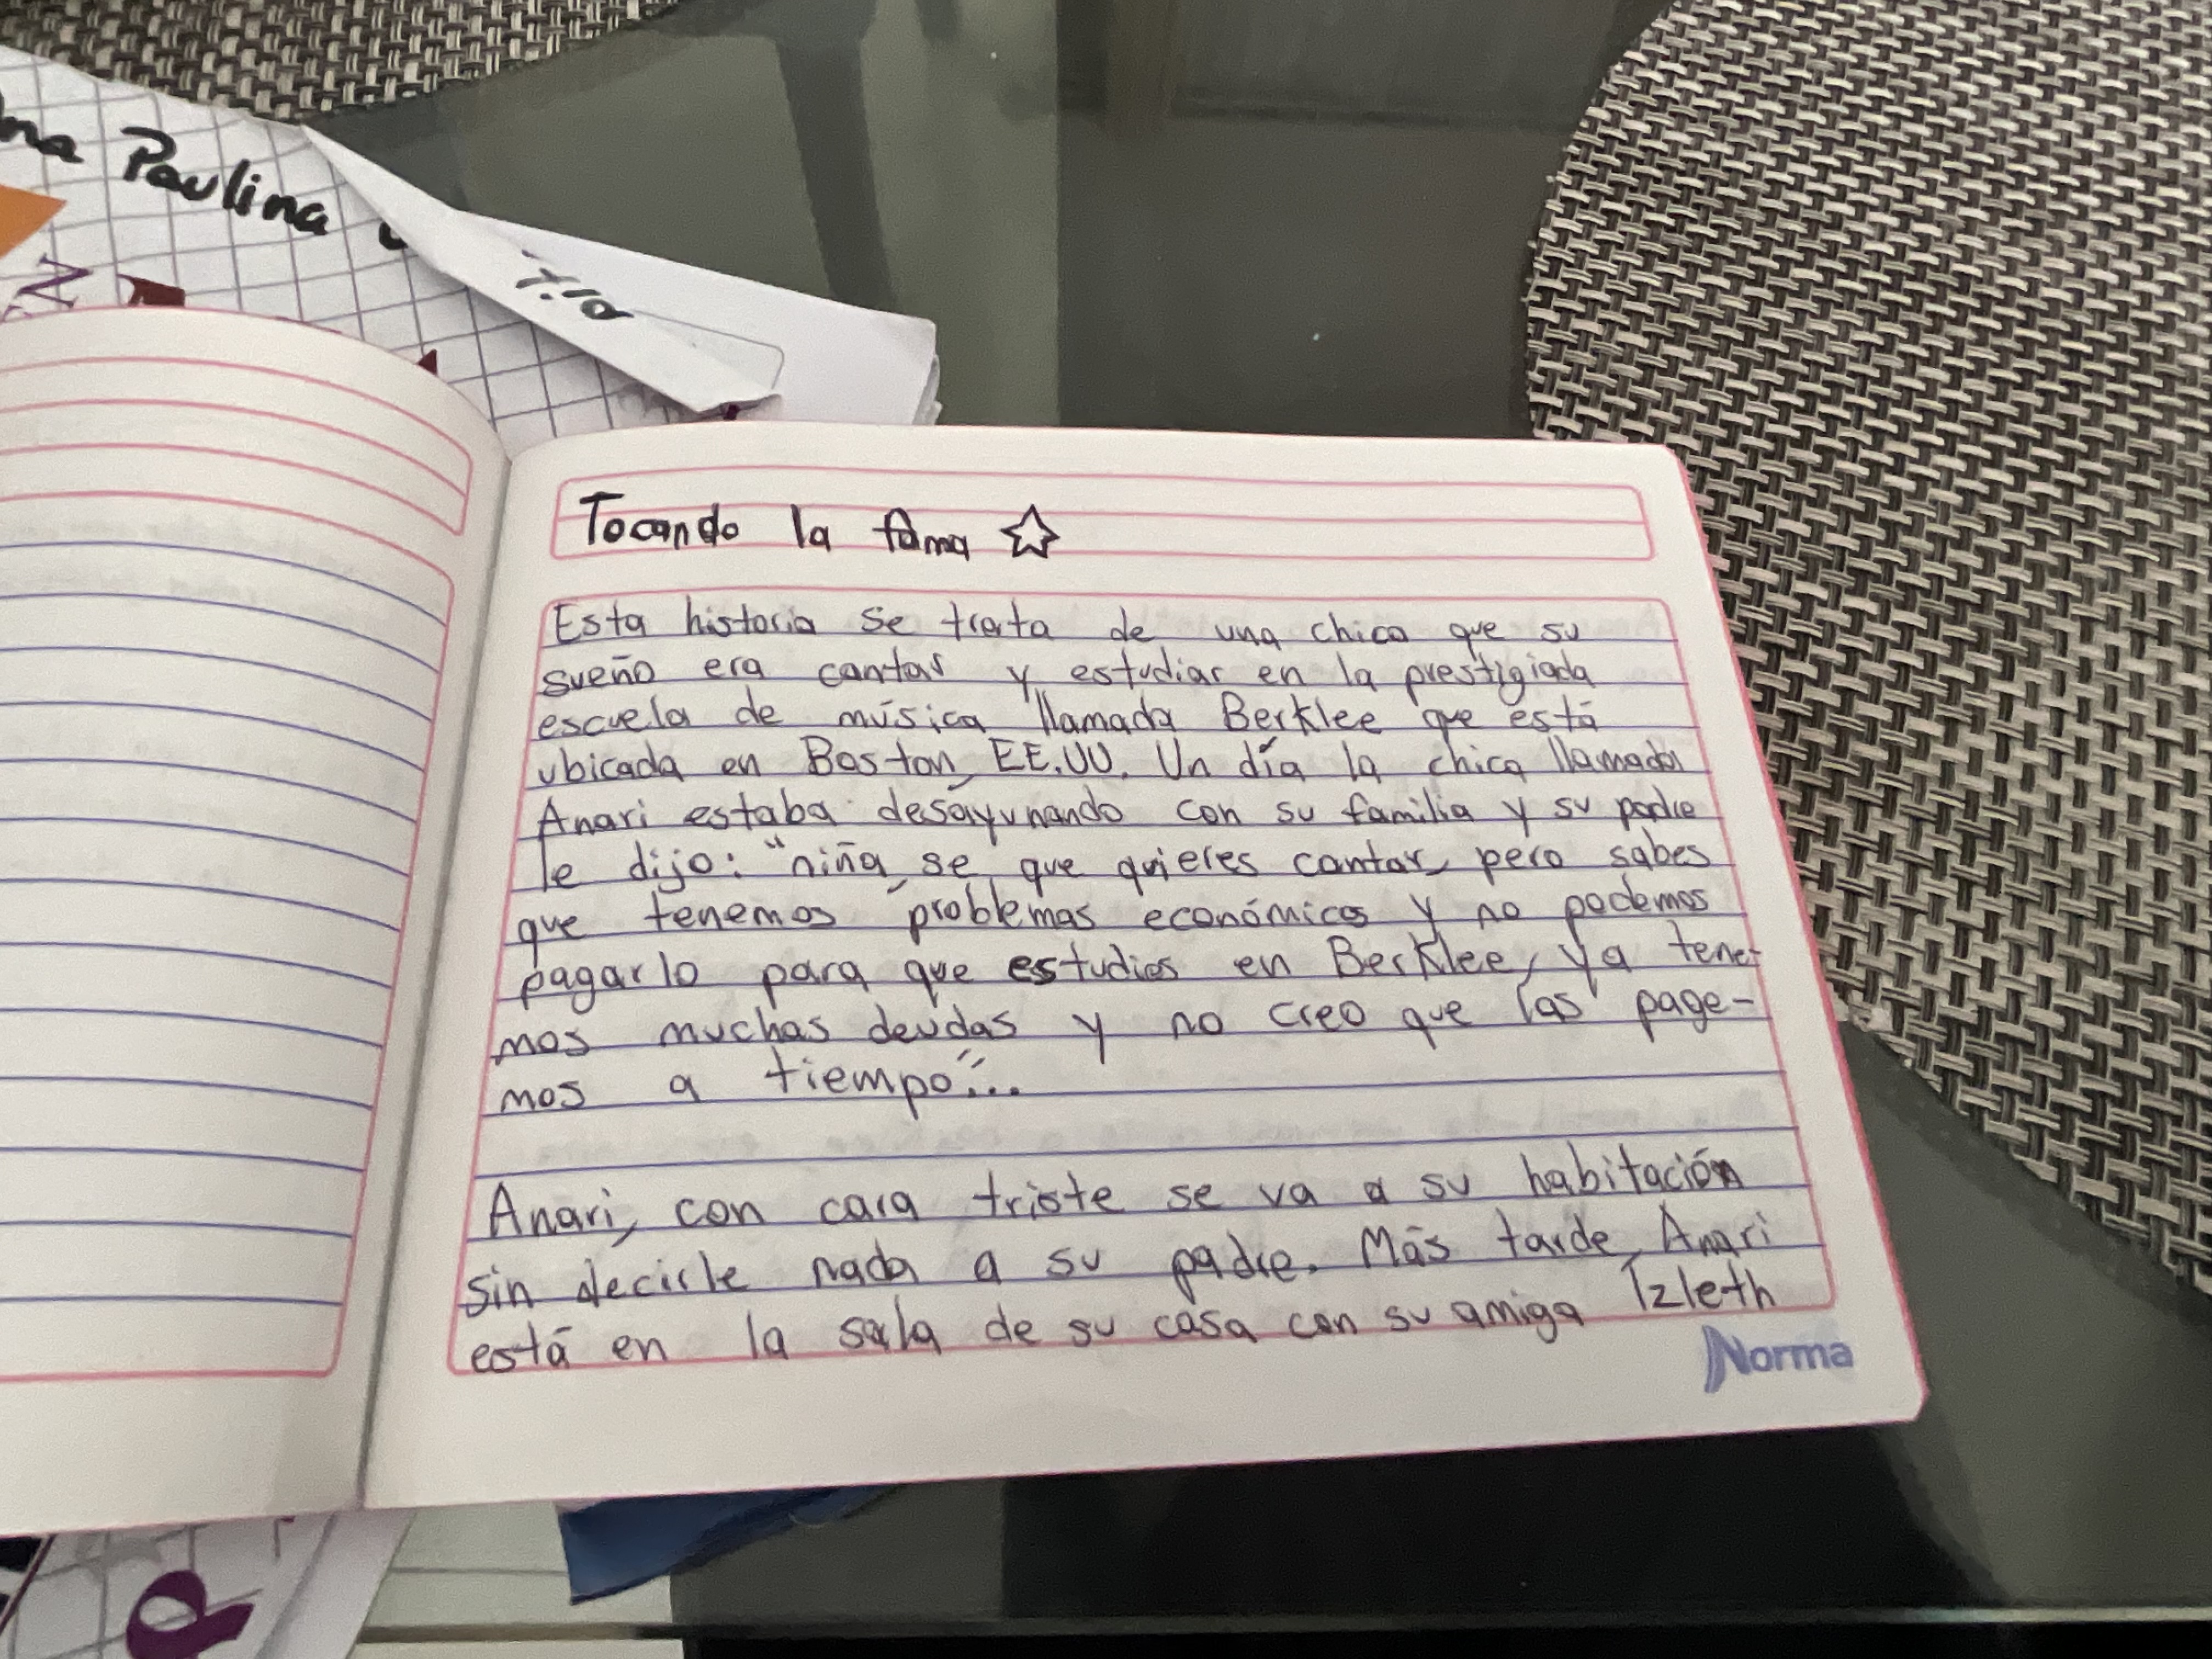 Paulina
Tocando la fama
Esta historia se trata de una chica que su
sueño era cantar y estudiar en la prestigiada
escuela de música llamada Berklee que está
ubicada en Boston, EE.UU. Un día la chica llamada
Anari estaba desayunando con su familia y su padre
le dijo: "niña, se que quieres cantar, pero sabes
que tenemos problemas económicos y no podemos
pagarlo para que estudies en Berklee, ya tene-
mos muchas deudas y no creo que las page-
mos a tiempo"...
Anari, con cara triste se va a su habitación
sin decirle nada a su padre. Más tarde, Anari
está en la sala de su casa con su amiga Izleth
Norma